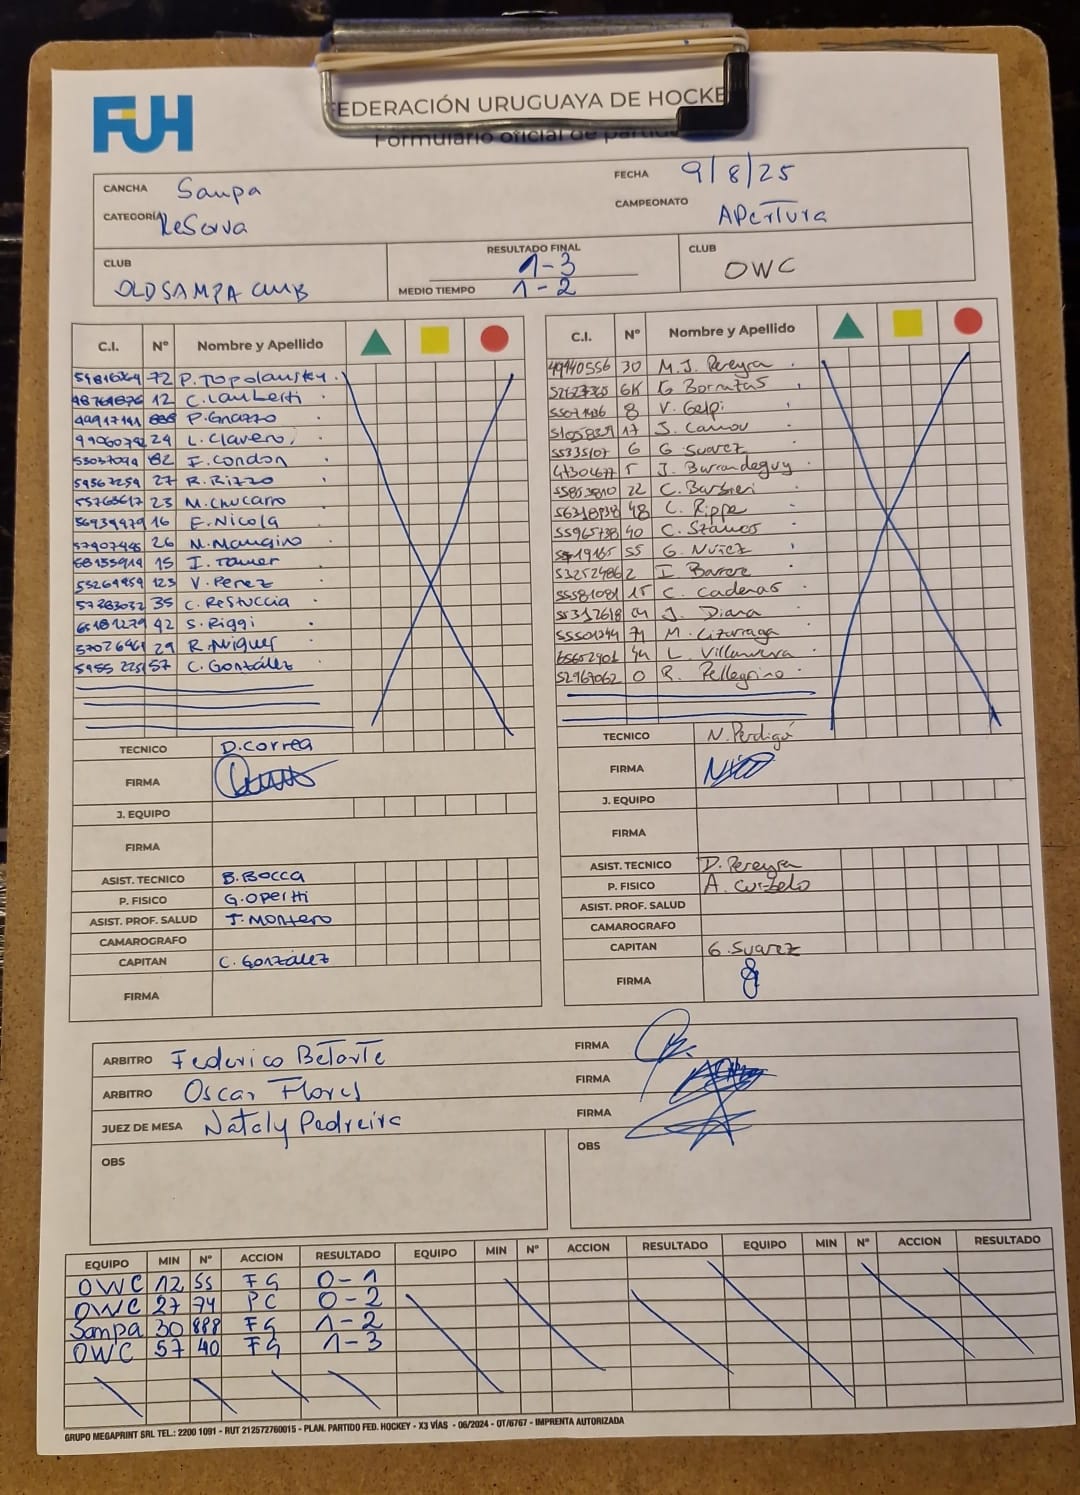 FUH
FEDERACIÓN URUGUAYA DE HOCKE
Formulario oficial de partido
CANCHA Sampa
FECHA 9/8/25
CATEGORÍA Reserva
CAMPEONATO APerTura
CLUB OLD SAMPA CLUB
RESULTADO FINAL 1-3
MEDIO TIEMPO 1-2
CLUB OWC
C.I. Nº Nombre y Apellido
72 P. TOPolansky
12 C. Lamberti
49917141 888 P. Gnazzo
24 L. Clavero
53037094 82 F. Condon
59567259 27 R. Rizzo
55763617 23 M. Chucarro
56939479 16 E. Nicola
57907446 26 M. Mangino
15 I. Tomer
55264959 123 V. Perez
57283032 35 C. ReStuccia
42 S. Riggi
29 R. Miguer
57 C. González
TECNICO D. Correa
FIRMA
J. EQUIPO
FIRMA
ASIST. TECNICO B. Bocca
P. FISICO G. Opertti
ASIST. PROF. SALUD J. Montero
CAMAROGRAFO
CAPITAN C. González
FIRMA
C.I. Nº Nombre y Apellido
49940556 30 M. J. Pereyra
GK G. Borratas
8 V. Gelpi
17 J. Camou
55335107 6 G. Suarez
5 J. Barrandeguy
22 C. Barbieri
48 C. Rippe
55965738 40 C. Stanos
55 G. Nuñez
53252486 2 I. Barere
55581081 15 C. Cadenas
55312618 04 J. Diana
55501244 74 M. Lizarraga
L. Villanueva
52969062 0 R. Pellegrino
TECNICO N. Perdigó
FIRMA
J. EQUIPO
FIRMA
ASIST. TECNICO D. Pereyra
P. FISICO A. Curbelo
ASIST. PROF. SALUD
CAMAROGRAFO
CAPITAN G. Suarez
FIRMA
ARBITRO Federico BeTarTe
FIRMA
ARBITRO Oscar Flores
FIRMA
JUEZ DE MESA Nataly Pedreira
FIRMA
OBS
OBS
EQUIPO MIN Nº ACCION RESULTADO EQUIPO MIN Nº ACCION RESULTADO EQUIPO MIN Nº ACCION RESULTADO
OWC 12 55 FG 0-1
OWC 27 74 PC 0-2
Sampa 30 888 FG 1-2
OWC 57 40 FG 1-3
GRUPO MEGAPRINT SRL TEL.: 2200 1091 - RUT 212572760015 - PLAN. PARTIDO FED. HOCKEY - X3 VÍAS - 06/2024 - OT/6767 - IMPRENTA AUTORIZADA